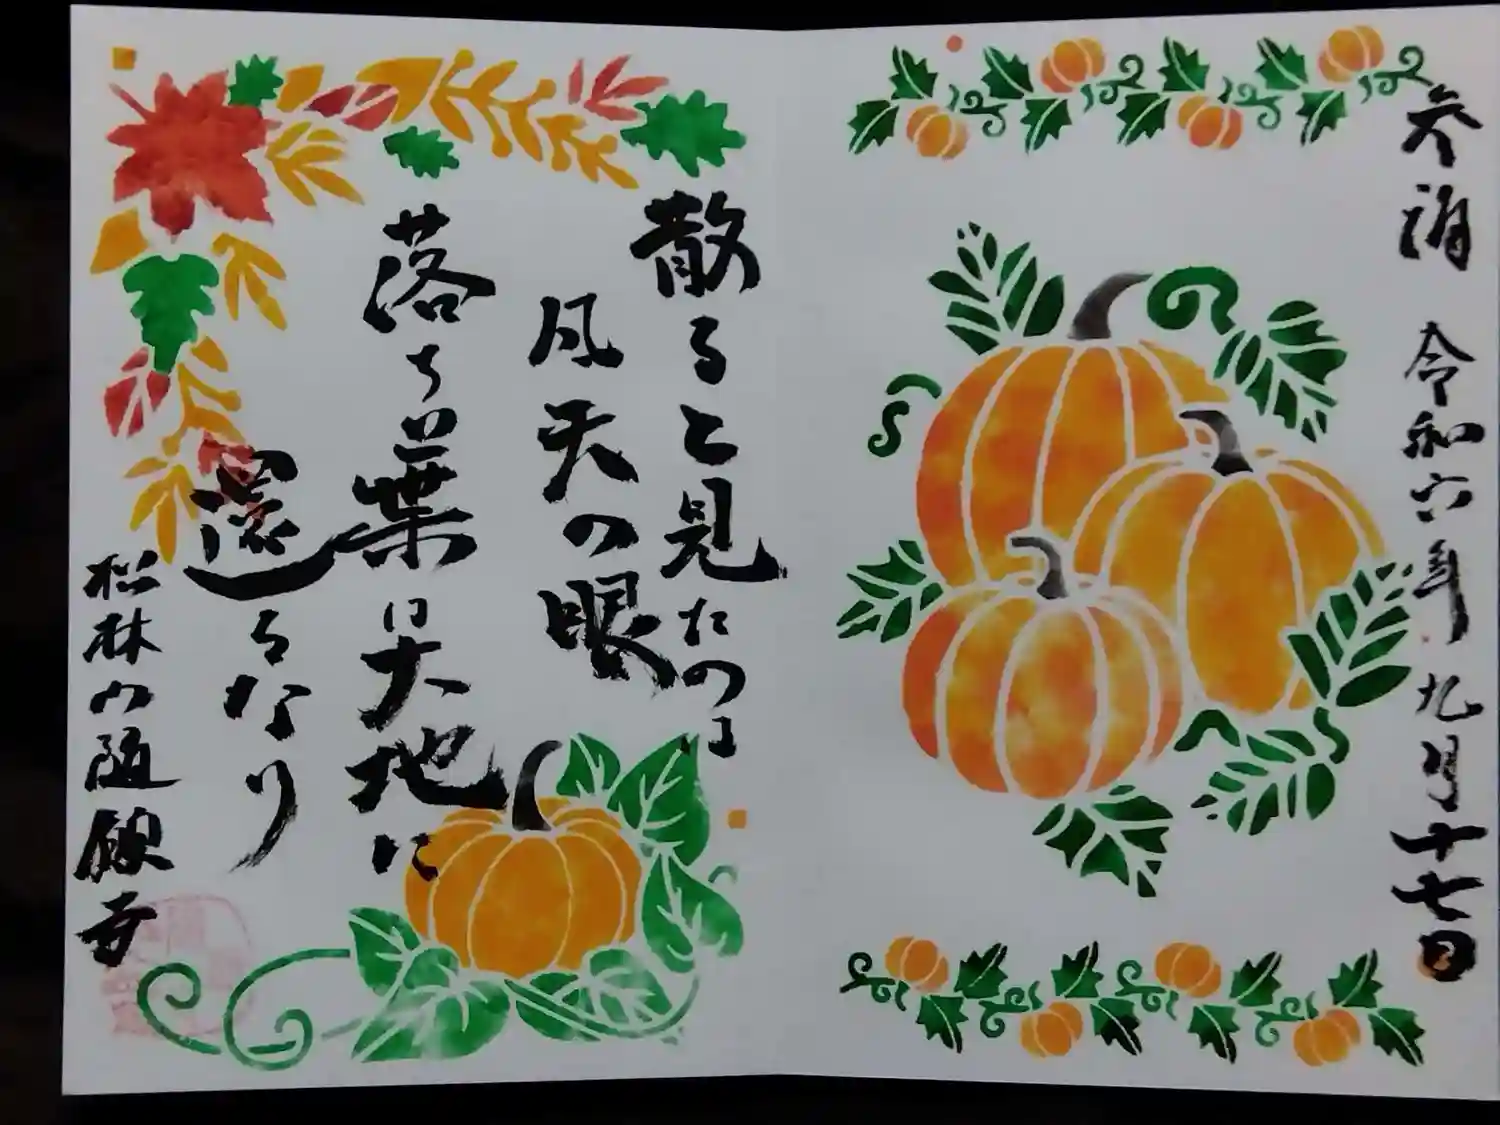 参詣 令和六年九月十七日
散ると見たのは
凡夫の眼
落ち葉は大地に
還るなり
松林山